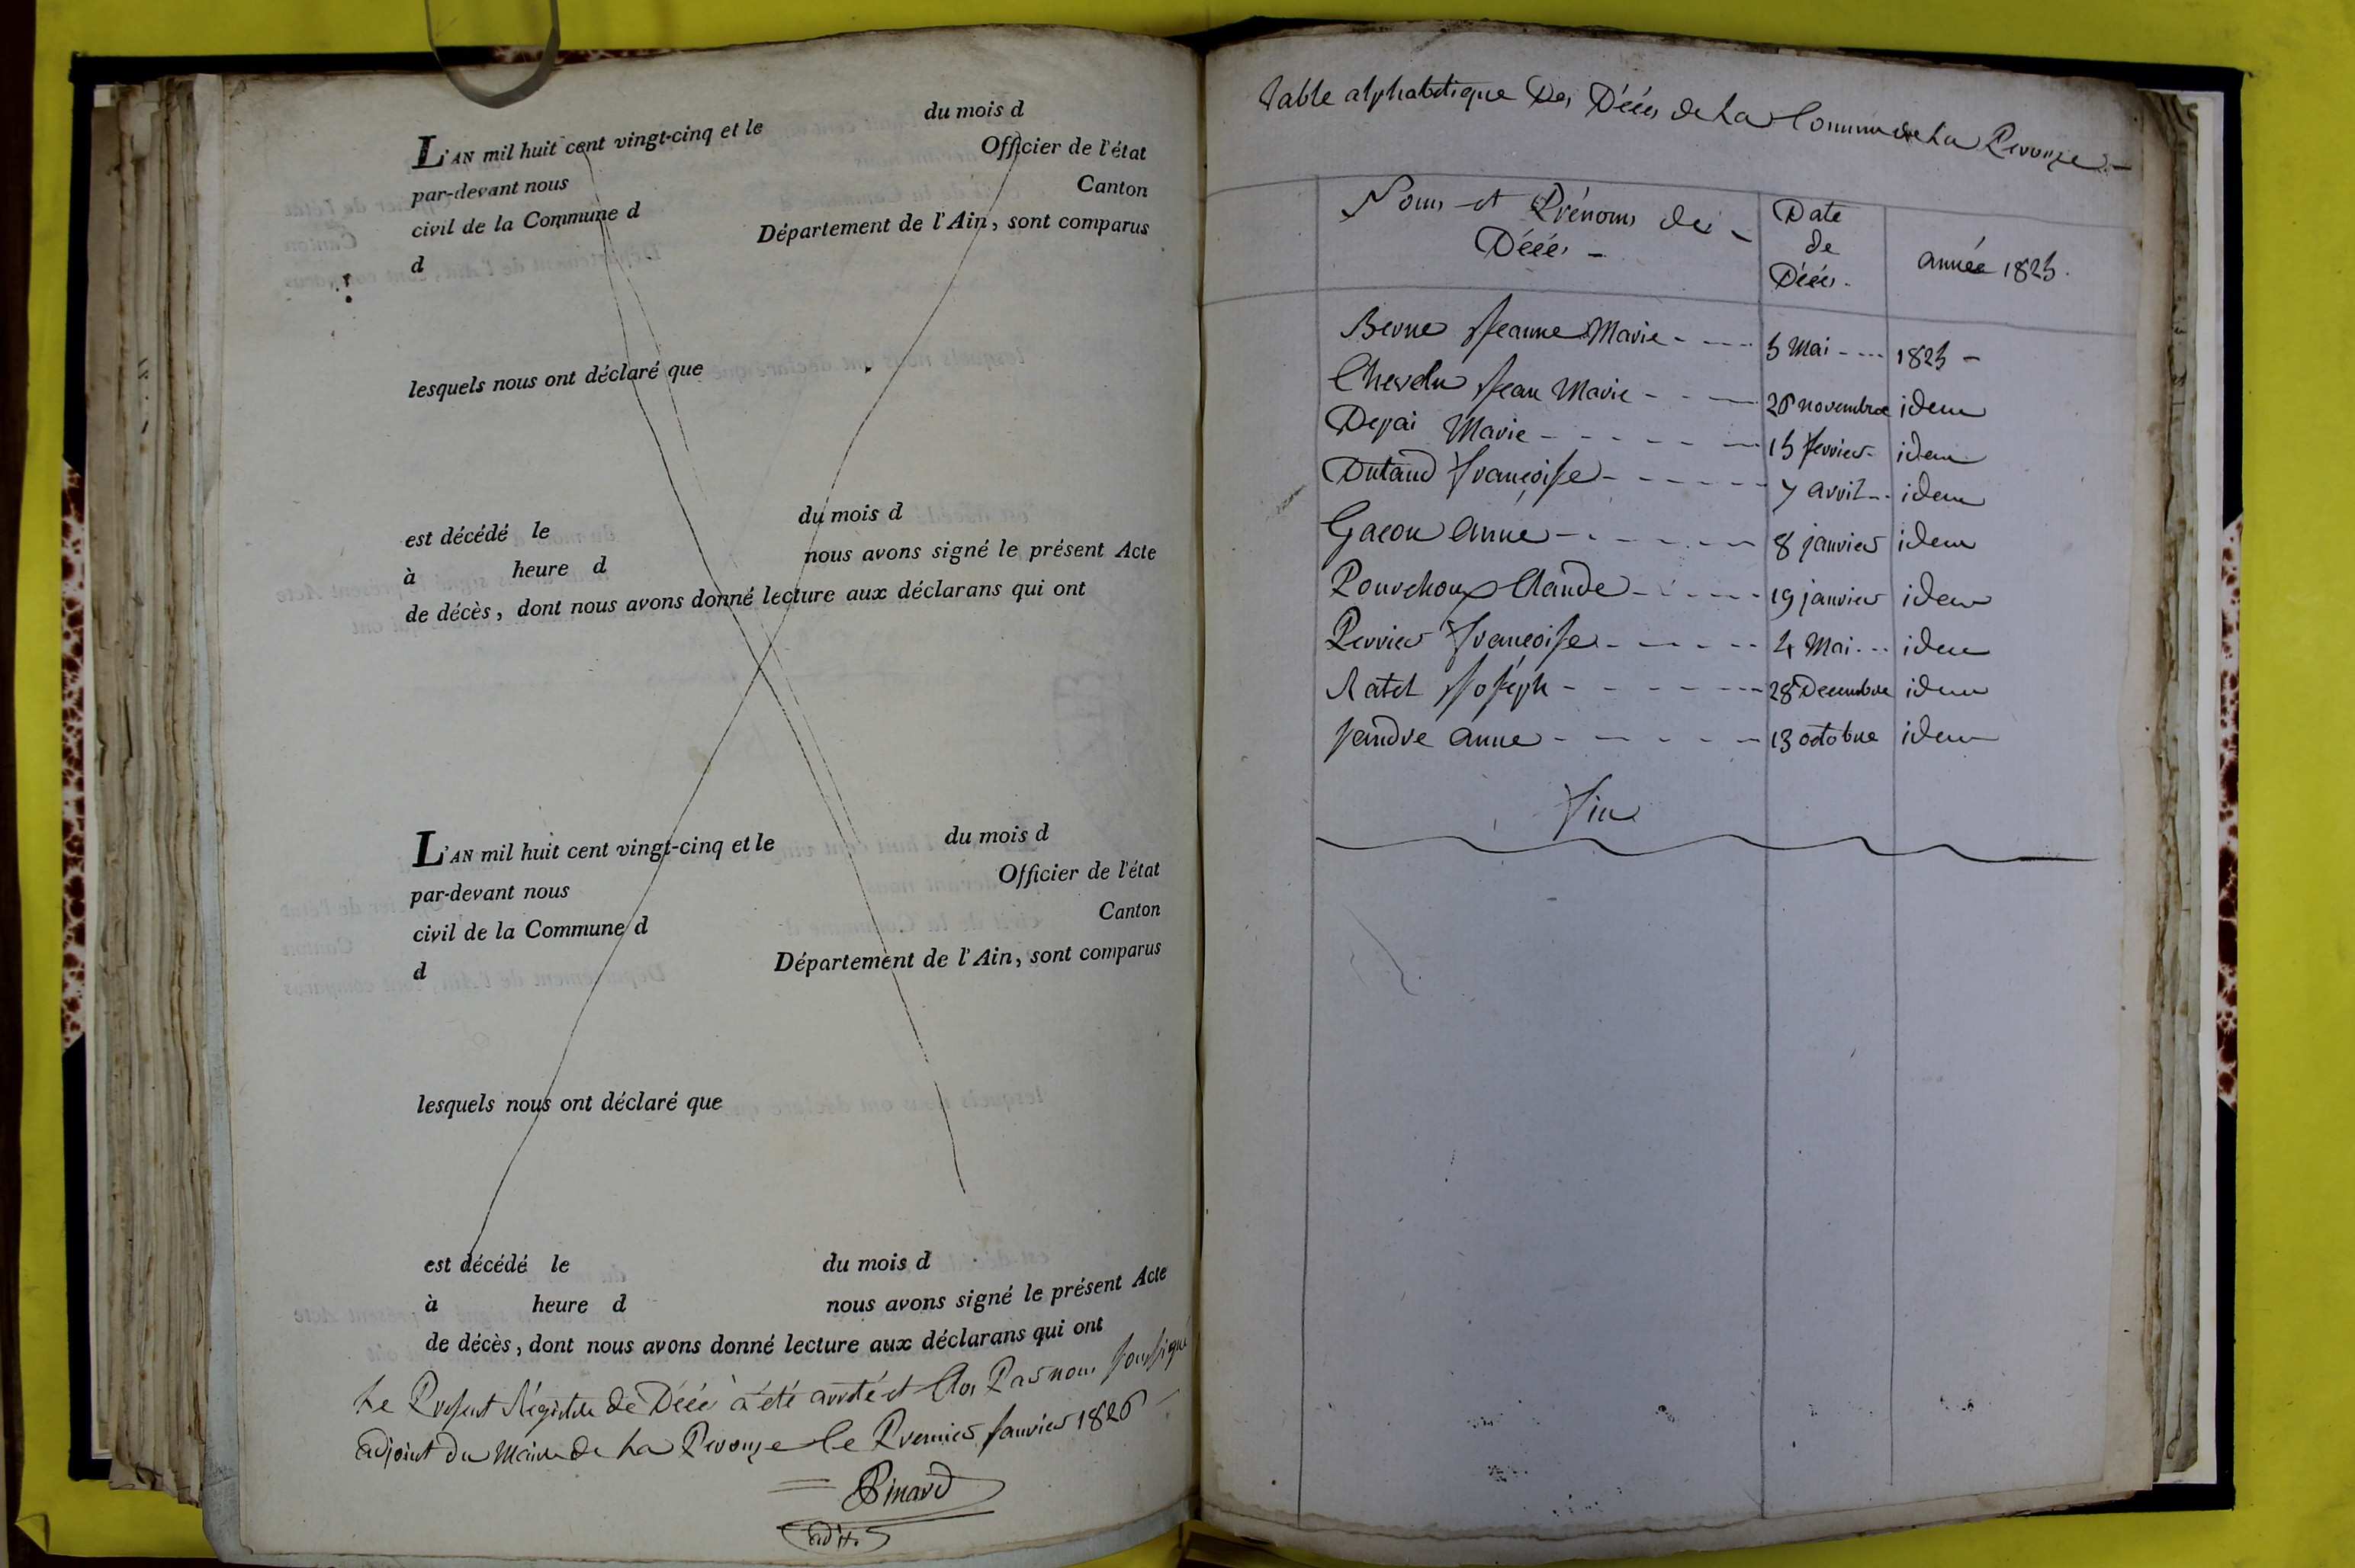 L'AN mil huit cent vingt-cinq et le du mois d
par-devant nous Officier de l'état
civil de la Commune d Canton
d Département de l'Ain, sont comparus
lesquels nous ont déclaré que
est décédé le du mois d
à heure d nous avons signé le présent Acte
de décès, dont nous avons donné lecture aux déclarans qui ont
L'AN mil huit cent vingt-cinq et le du mois d
par-devant nous Officier de l'état
civil de la Commune d Canton
d Département de l'Ain, sont comparus
lesquels nous ont déclaré que
est décédé le du mois d
à heure d nous avons signé le présent Acte
de décès, dont nous avons donné lecture aux déclarans qui ont
Le Present Régistre de Décé à été arrêté et Clos Par nous soussigné
adjoint du Maire de La Perouze le Premier Janvier 1826
Pinard
adjt.
Table alphabetique Des Décés de La Commune de La Perouze
Noms et Prénoms des Date
Décés de année 1825.
Décés
Berne Jeanne Marie 5 Mai 1825
Chevelu Jean Marie 26 novembre idem
Depai Marie 15 fevrier idem
Dutand Françoise 7 avril idem
Gacon anne 8 janvier idem
Pourchoux Claude 19 janvier idem
Perrier Françoise 4 Mai idem
Ratel Joséph 28 Decembre idem
Jandre anne 13 octobre idem
Fin